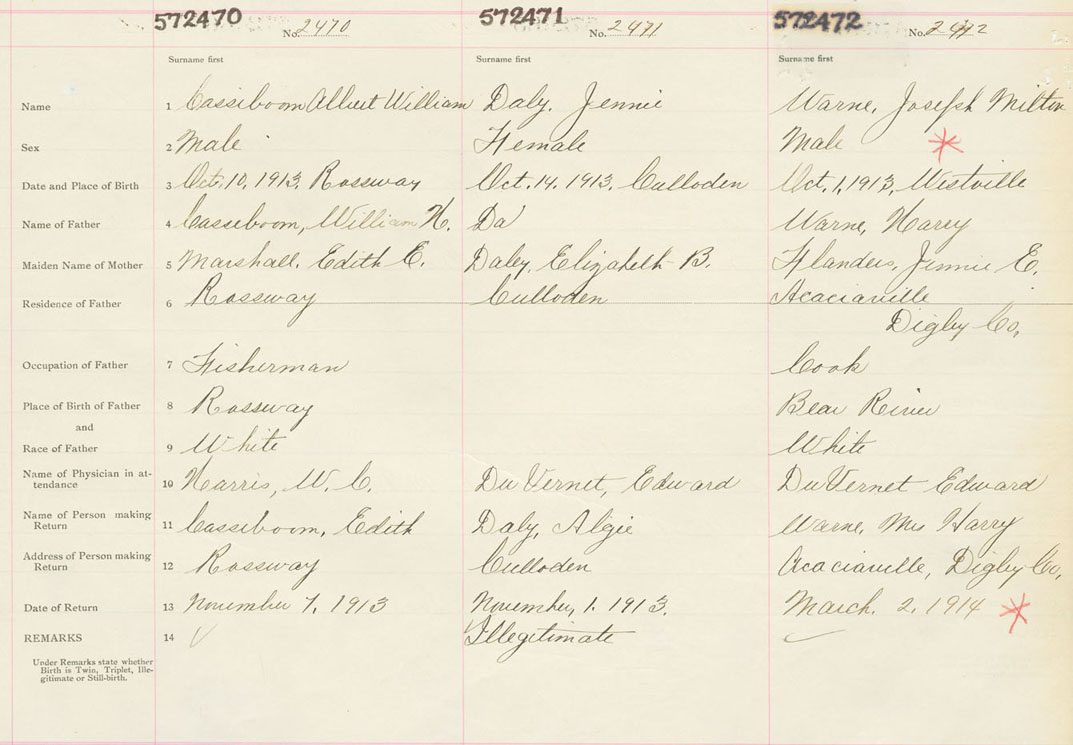 572470 No. 2470 572471 No. 2471 572472 No. 2472
Surname first Surname first Surname first
Name 1 Cassiboom Albert William Daly, Jennie Warne, Joseph Milton
Sex 2 Male Female Male
Date and Place of Birth 3 Oct. 10, 1913, Rossway Oct. 14. 1913, Culloden Oct. 1, 1913, Westville
Name of Father 4 Cassiboom, William H. Da Warne, Harry
Maiden Name of Mother 5 Marshall, Edith E. Daley, Elizabeth B. Flanders, Jennie E.
Residence of Father 6 Rossway Culloden Acaciaville
Digby Co,
Occupation of Father 7 Fisherman Cook
Place of Birth of Father 8 Rossway Bear River
and
Race of Father 9 White White
Name of Physician in at-
tendance 10 Harris, W. C. Du Vernet, Edward Du Vernet Edward
Name of Person making
Return 11 Cassiboom, Edith Daly, Algie Warne, Mrs Harry
Address of Person making
Return 12 Rossway Culloden Acaciaville, Digby Co,
Date of Return 13 November 7, 1913 November, 1. 1913. March. 2, 1914
REMARKS 14 Illegitimate
Under Remarks state whether
Birth is Twin, Triplet, Ille-
gitimate or Still-birth.